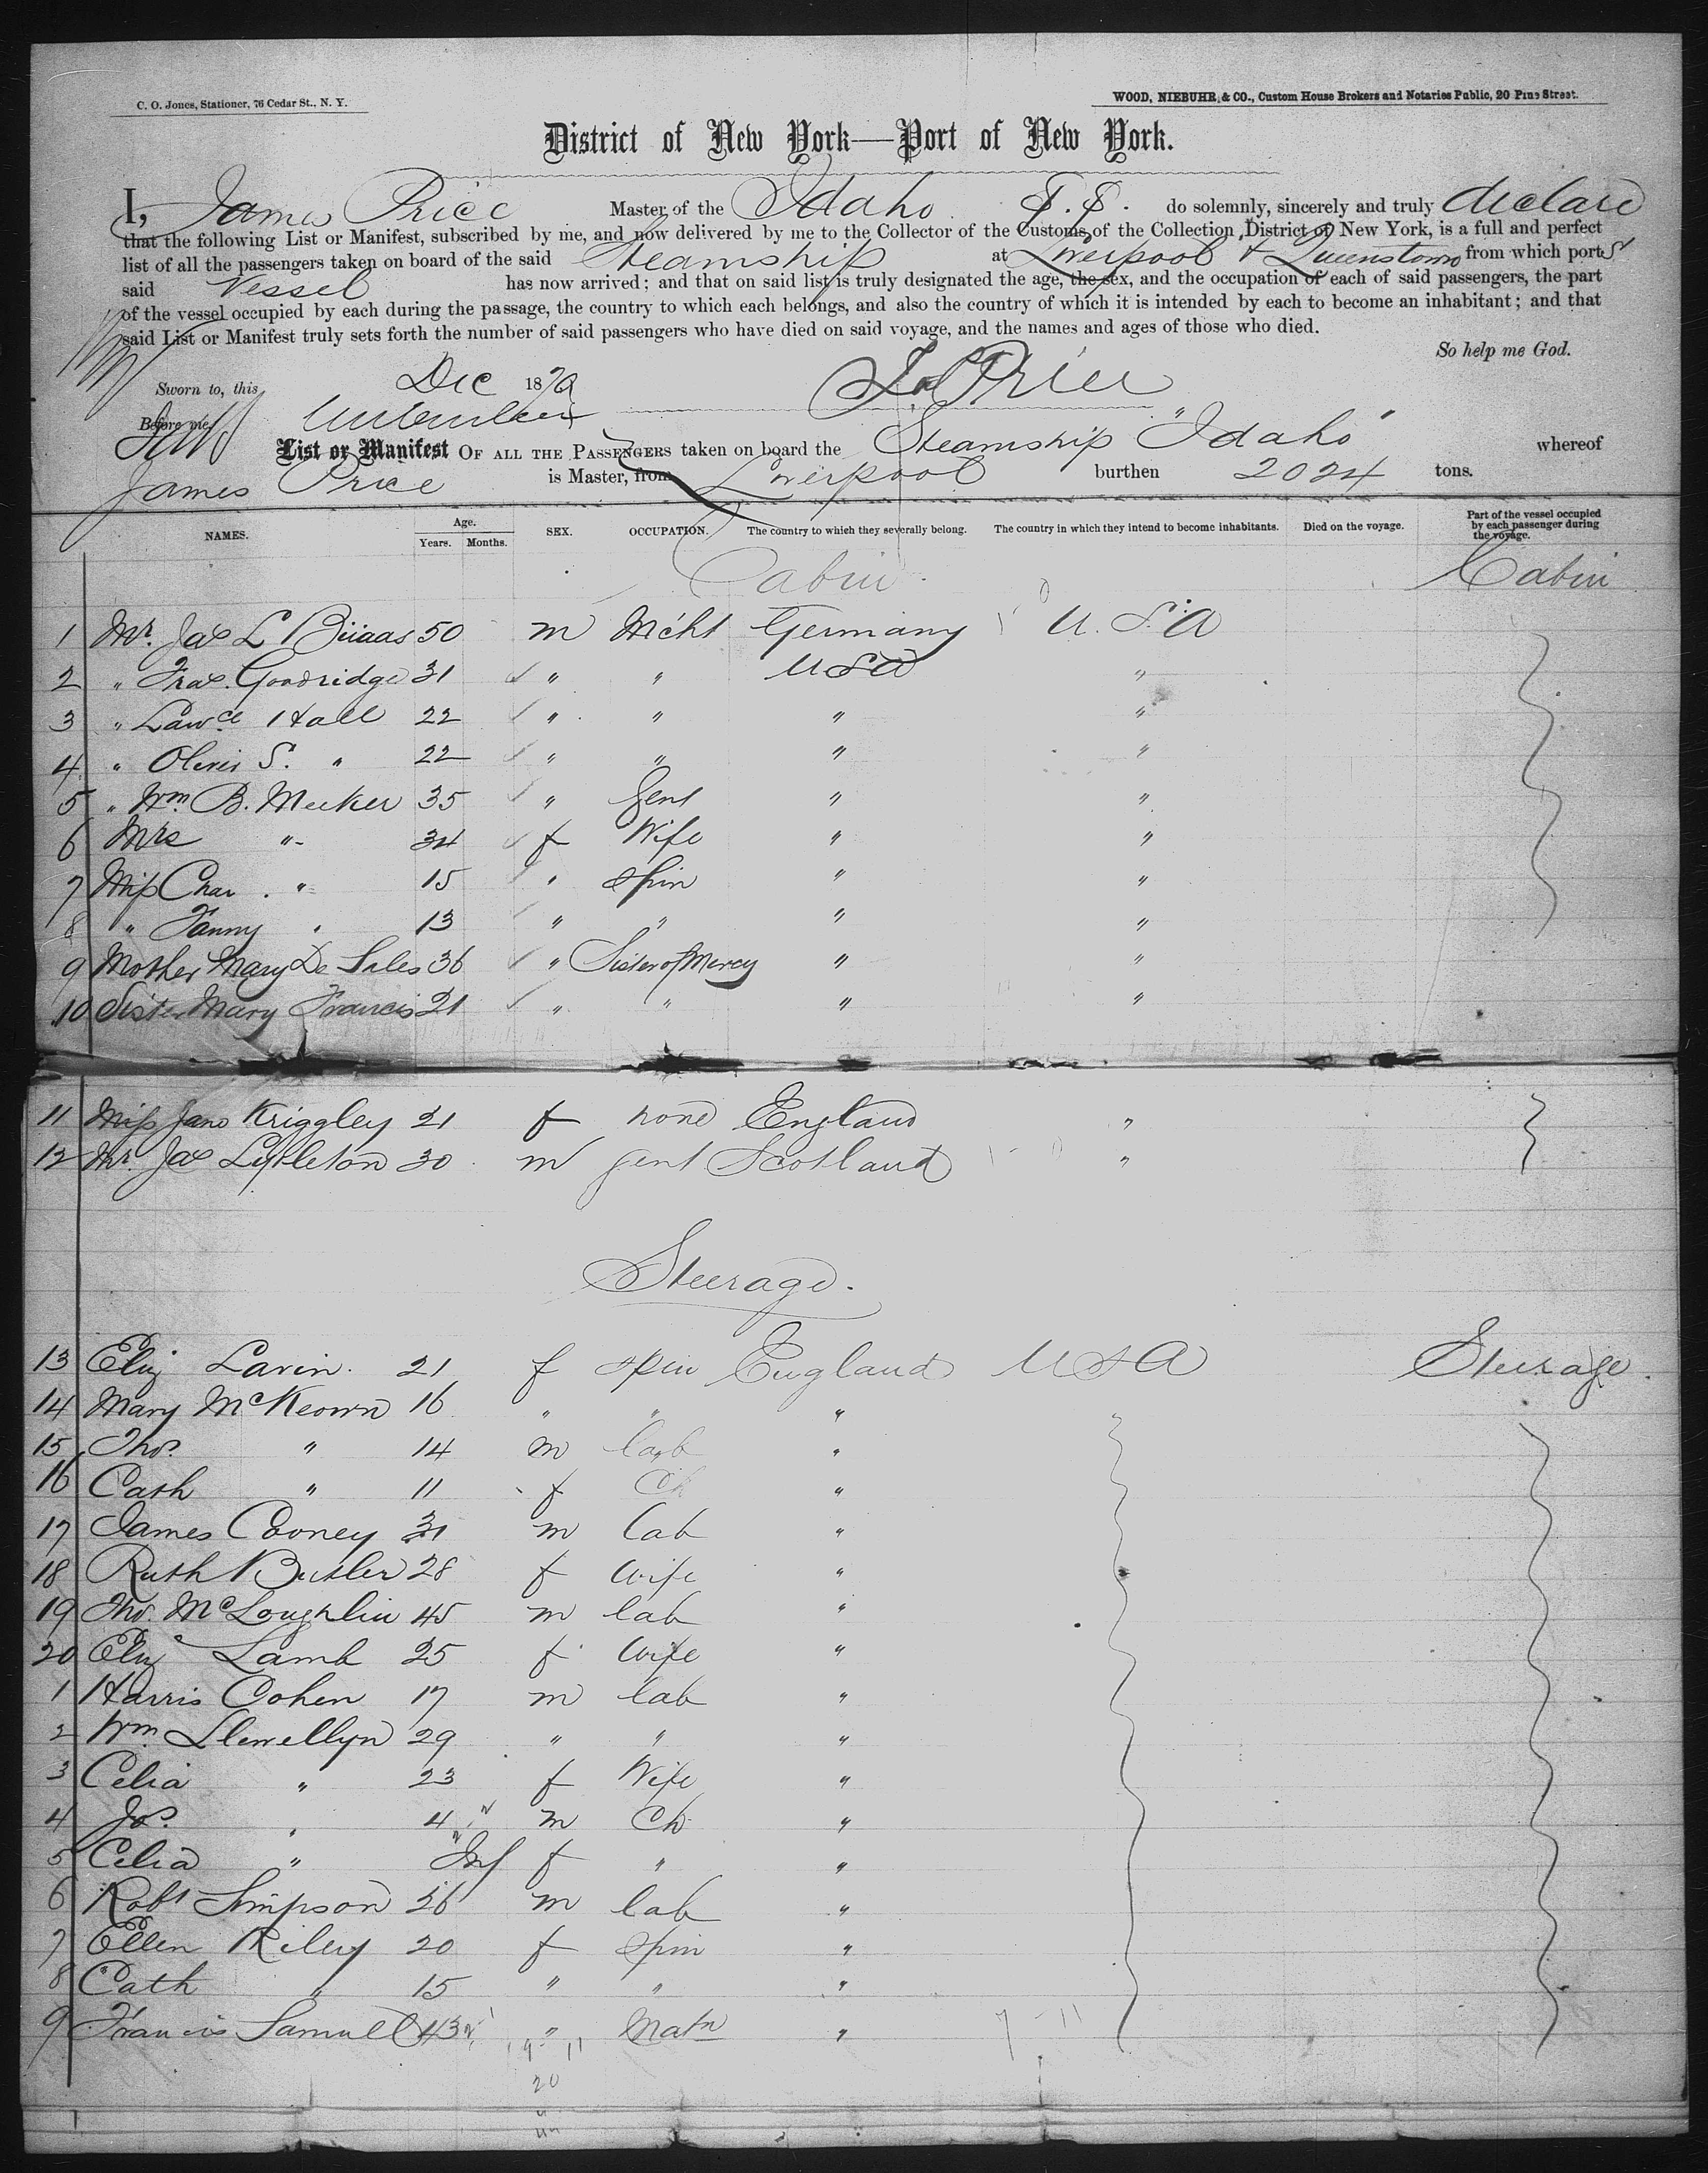 C. O. Jones, Stationer, 76 Cedar St., N. Y.
WOOD, NIEBUHR & CO., Custom House Brokers and Notaries Public, 20 Pine Street.
District of New York—Port of New York.
I, James Price Master of the Idaho S.S. do solemnly, sincerely and truly declare
that the following List or Manifest, subscribed by me, and now delivered by me to the Collector of the Customs of the Collection District of New York, is a full and perfect
list of all the passengers taken on board of the said Steamship at Liverpool & Queenstown from which ports
said Vessel has now arrived; and that on said list is truly designated the age, the sex, and the occupation of each of said passengers, the part
of the vessel occupied by each during the passage, the country to which each belongs, and also the country of which it is intended by each to become an inhabitant; and that
said List or Manifest truly sets forth the number of said passengers who have died on said voyage, and the names and ages of those who died.
So help me God.
Sworn to, this Dec 1870 Jas Price
Before me,
List or Manifest OF ALL THE PASSENGERS taken on board the Steamship "Idaho" whereof
James Price is Master, from Liverpool burthen 2024 tons.
NAMES. Age. Years. Months. SEX. OCCUPATION. The country to which they severally belong. The country in which they intend to become inhabitants. Died on the voyage. Part of the vessel occupied by each passenger during the voyage.
Cabin Cabin
1 Mr. Jas L 50 m Mcht Germany U.S.A
2 " Fras. Goodridge 31 " " USA "
3 " Lawce Hall 22 " " " "
4 " Oliver S. " 22 " " " "
5 " Wm B. Meeker 35 " Gent " "
6 Mrs " 34 f Wife " "
7 Miss Char. " 15 " Spin " "
8 " Fanny " 13 " " " "
9 Mother Mary De Sales 36 " Sister of Mercy " "
10 Sister Mary Francis 21 " " " "
11 Miss Jane Kriggley 21 f none England "
12 Mr. Jas 30 m gent Scotland "
Steerage.
13 Eliz Lavin. 21 f spin England USA Steerage.
14 Mary McKeown 16 " " "
15 Thos. " 14 m lab "
16 Cath " 11 f Ch "
17 James Cooney 31 m Lab "
18 Ruth Butler 28 f Wife "
19 Thos McLoughlin 45 m lab "
20 Eliz Lamb 25 f Wife "
1 Harris Cohen 17 m lab "
2 Wm. Llewellyn 29 " " "
3 Celia " 23 f Wife "
4 Jos. " 4 m Ch "
5 Celia " Inf f " "
6 Robt Simpson 26 m lab "
7 Ellen Riley 20 f Spin "
8 Cath " 15 " " "
9 Francis Samuel 43 " Matn " 7 - 11
19 - 11
20